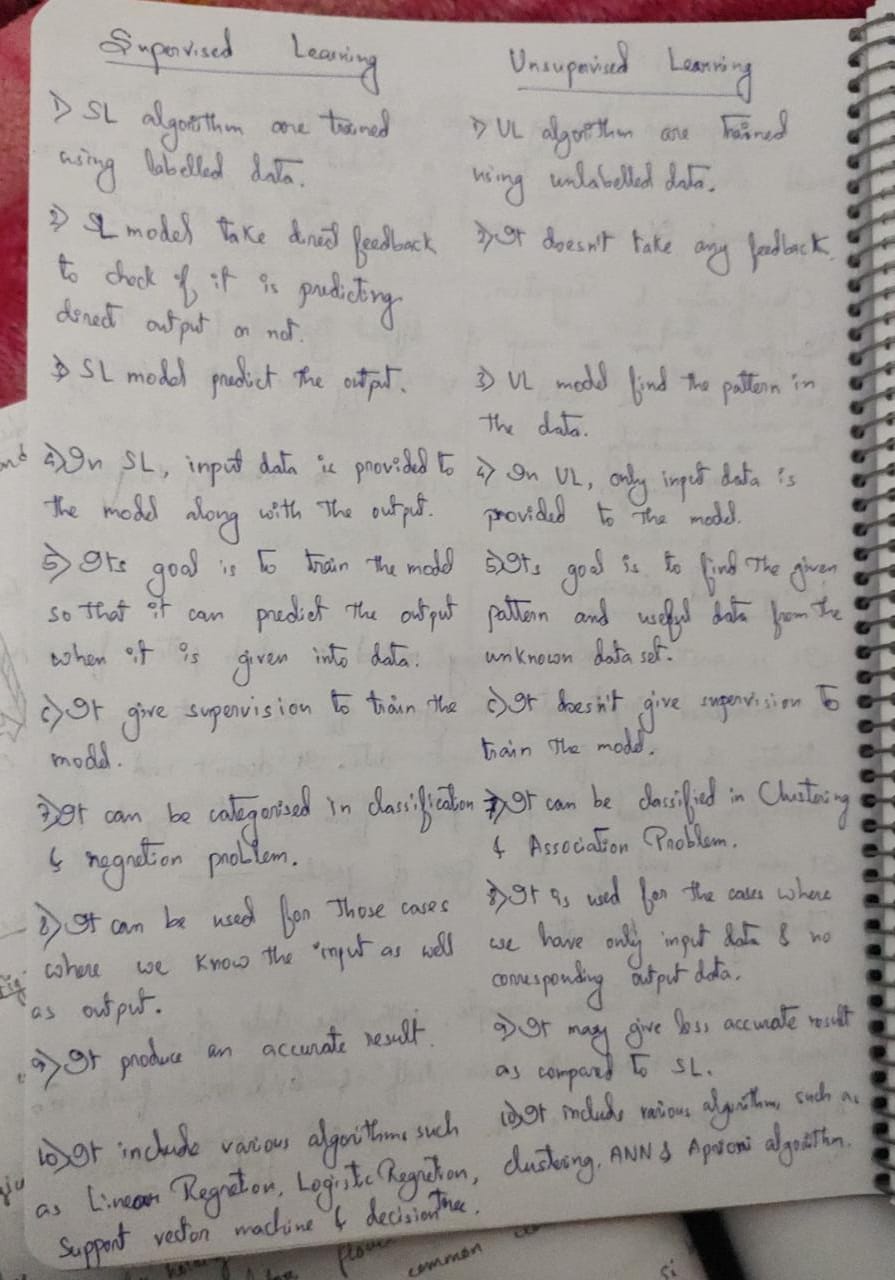 Supervised Learning
1) SL algorithm are trained
using labelled data.
2) SL model take direct feedback
to check if it is predicting
direct output or not.
3) SL model predict the output.
4) In SL, input data is provided to
the model along with the output.
5) Its goal is to train the model
so that it can predict the output
when it is given into data.
6) It give supervision to train the
model.
7) It can be categorised in classification
& regretion problem.
8) It can be used for those cases
where we know the input as well
as output.
9) It produce an accurate result.
10) It include various algorithms such
as Linear Regretion, Logistic Regretion,
Support vector machine & decision tree.
Unsupervised Learning
1) UL algorithm are trained
using unlabelled data.
2) It doesn't take any feedback.
3) UL model find the pattern in
the data.
4) In UL, only input data is
provided to the model.
5) Its goal is to find the given
pattern and useful data from the
unknown data set.
6) It doesn't give supervision to
train the model.
7) It can be classified in Clustering
& Association Problem.
8) It is used for the cases where
we have only input data & no
corresponding output data.
9) It may give less accurate result
as compared to SL.
10) It include various algorithm, such as
clustering, ANN & Apriori algorithm.
common
si